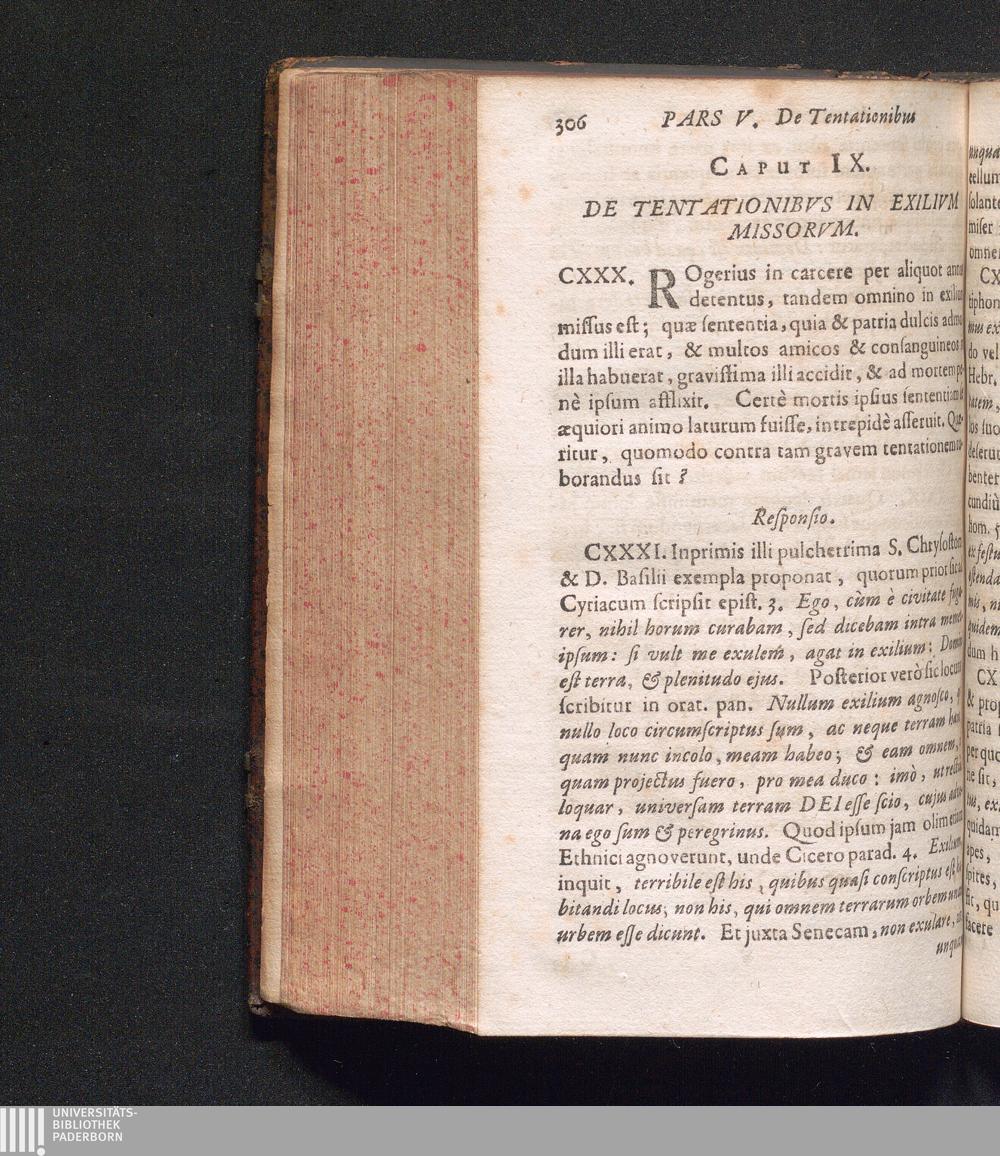 306 PARS V. De Tentationibus
CAPUT IX.
DE TENTATIONIBVS IN EXILIVM
MISSORVM.
CXXX. ROgerius in carcere per aliquot
detentus, tandem omnino in
missus est; quæ sententia, quia & patria dulcis
dum illi erat, & multos amicos & consanguineos
illa habuerat, gravissima illi accidit, & ad mortem
nè ipsum afflixit. Certè mortis ipsius sententiam
æquiori animo laturum fuisse, intrepidè asseruit. Quæ-
ritur, quomodo contra tam gravem tentationem
borandus sit?
Responsio.
CXXXI. Inprimis illi pulcherrima S. Chrysostom
& D. Basilii exempla proponat, quorum prior sic
Cyriacum scripsit epist. 3. Ego, cùm è civitate
rer, nihil horum curabam, sed dicebam intra
ipsum: si vult me exulem, agat in exilium:
est terra, & plenitudo ejus. Posterior verò sic
scribitur in orat. pan. Nullum exilium agnosco,
nullo loco circumscriptus sum, ac neque terram
quam nunc incolo, meam habeo; & eam omnem,
quam projectus fuero, pro mea duco: imò, ut
loquar, universam terram DEI esse scio, cujus
na ego sum & peregrinus. Quod ipsum jam olim
Ethnici agnoverunt, unde Cicero parad. 4.
inquit, terribile est his, quibus quasi conscriptus
bitandi locus; non his, qui omnem terrarum orbem
urbem esse dicunt. Et juxta Senecam, non exulare,
cellum
miser
CX
tiphon
do vel
Hebr.
los suo
hom.
dum h
CX
& prop
patria
ne sit,
quidam
apes,
sit, qu
facere
UNIVERSITÄTS-
BIBLIOTHEK
PADERBORN